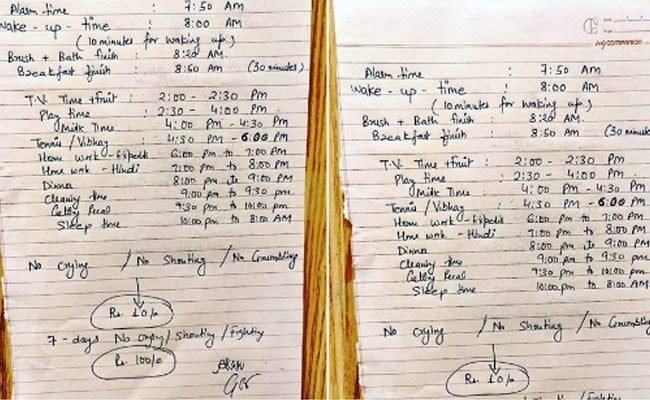 Alarm time : 7:50 AM
Wake-up-time : 8:00 AM
(10 minutes for waking up)
Brush + Bath finish : 8:20 AM
Breakfast finish : 8:50 AM (30 minutes)
T.V. Time + fruit : 2:00 - 2:30 PM
Play time : 2:30 - 4:00 PM
Milk Time : 4:00 PM - 4:30 PM
Tennis / Vibhay : 4:30 PM - 6:00 PM
Home work - : 6:00 PM to 7:00 PM
Home work - Hindi : 7:00 PM to 8:00 PM
Dinner 8:00 pm to 9:00 PM
Cleaning time 9:00 pm to 9:30 pm
9:30 pm to 10:00 pm
Sleep time 10:00 pm to 8:00 AM
No Crying / No Shouting / No Grumbling
Rs. 10/-
7-days No Crying / Shouting / Fighting
Rs. 100/-
Alarm time : 7:50 AM
Wake-up-time : 8:00 AM
(10 minutes for waking up)
Brush + Bath finish : 8:20 AM
Breakfast finish : 8:50 AM (30 minu
T.V. Time + fruit : 2:00 - 2:30 PM
Play time : 2:30 - 4:00 PM
Milk Time : 4:00 PM - 4:30 PM
Tennis / Vibhay : 4:30 PM - 6:00 PM
Home work - : 6:00 PM to 7:00 PM
Home work - Hindi : 7:00 PM to 8:00 PM
Dinner 8:00 pm to 9:00 PM
Cleaning time 9:00 pm to 9:30 pm
9:30 pm to 10:00 pm
Sleep time 10:00 pm to 8:00 AM
No Crying / No Shouting / No Grumbling
Rs. 10/-